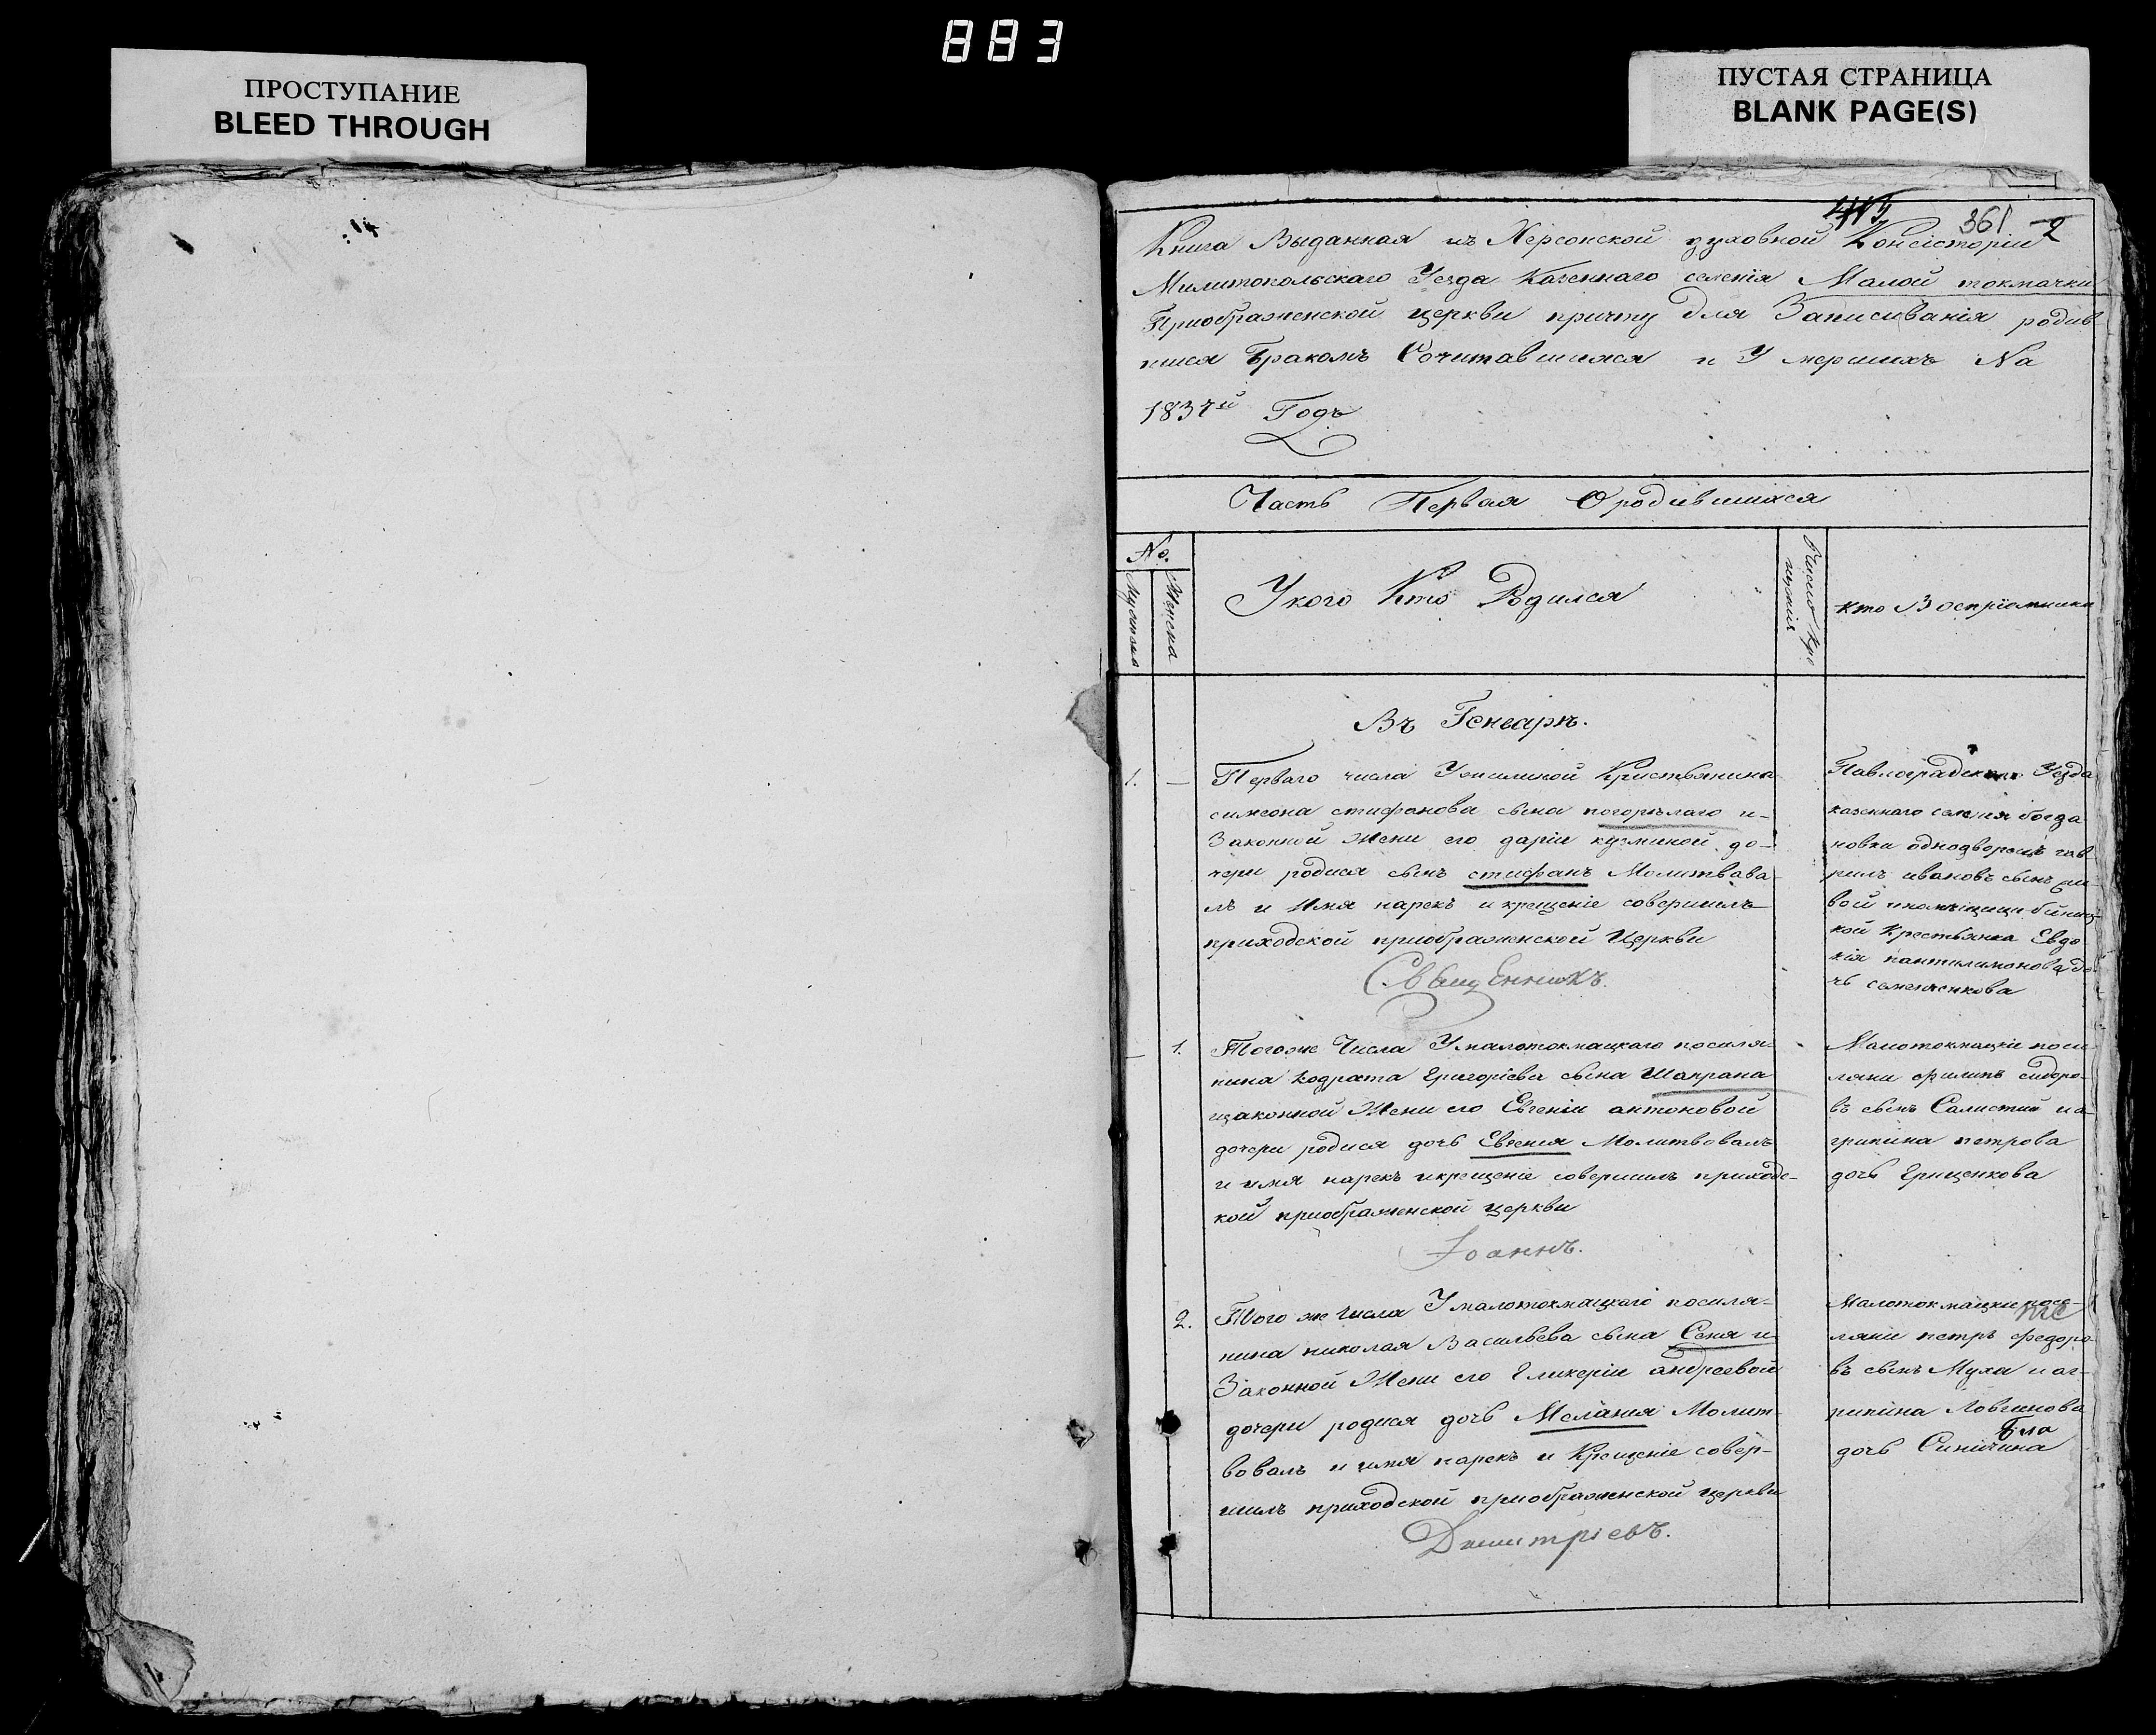 883
ПРОСТУПАНИЕ
BLEED THROUGH
ПУСТАЯ СТРАНИЦА
BLANK PAGE(S)
361 2
Книга Выданная изъ Херсонской духовной Консисторіи
Милитопольскаго Уезда Казеннаго селенія Малой токмачки
Приображенской церкви причту для Записиванія родив-
шися Бракомъ Сочитавшихся и Умершихъ На
1837й Годъ
Часть Первая О родившихся
No.
Мужеска
Женска
У кого Кто Родился
Число Кре
щенія
кто Воспріемники
Въ Генваре.
1. — Перваго числа Кристьянина
симеона стифанова сына погорелаго и-
Законной Жени его даріи кузминой до-
чери родися сынъ стифанъ Молитвова-
лъ и Имя нарекъ и крещеніе совершилъ
приходской приображенской Церкви
Священникъ.
Павлоградскаго Уезда
казеннаго селенія богда
новки однодворецъ гав
рилъ ивановъ сынъ
вой
кой Крестьянка Евдо
кія пантилимонова до-
чь семененкова
— 1. Тогоже Числа У малотокмацкаго посиля-
нина Кодрата Григоріева сына Шапрана
изаконной Жени его Евгеніи антоновой
дочери родися дочь Евгенія Молитвовалъ
и имя нарекъ икрещеніе совершилъ приходс-
кой приображенской церкви
Іоаннъ.
Малотокмацкіе поси-
ляни Филипъ сидоро-
въ сынъ иа-
грипина петрова
дочь Грищенкова
2. Того же Числа У малотокмацкаго посиля-
нина николая Васильева сына Сеня и
Законной Жени его Гликеріи андреевой
дочери родися дочь Меланія Молит-
вовалъ и имя нарекъ и Крещеніе совер-
шилъ приходской приображенской церкви
Димитріевъ.
Малотокмацкіе посе-
ляни петръ федоро
въ сынъ Муха и аг-
рипина Логвинова
дочь